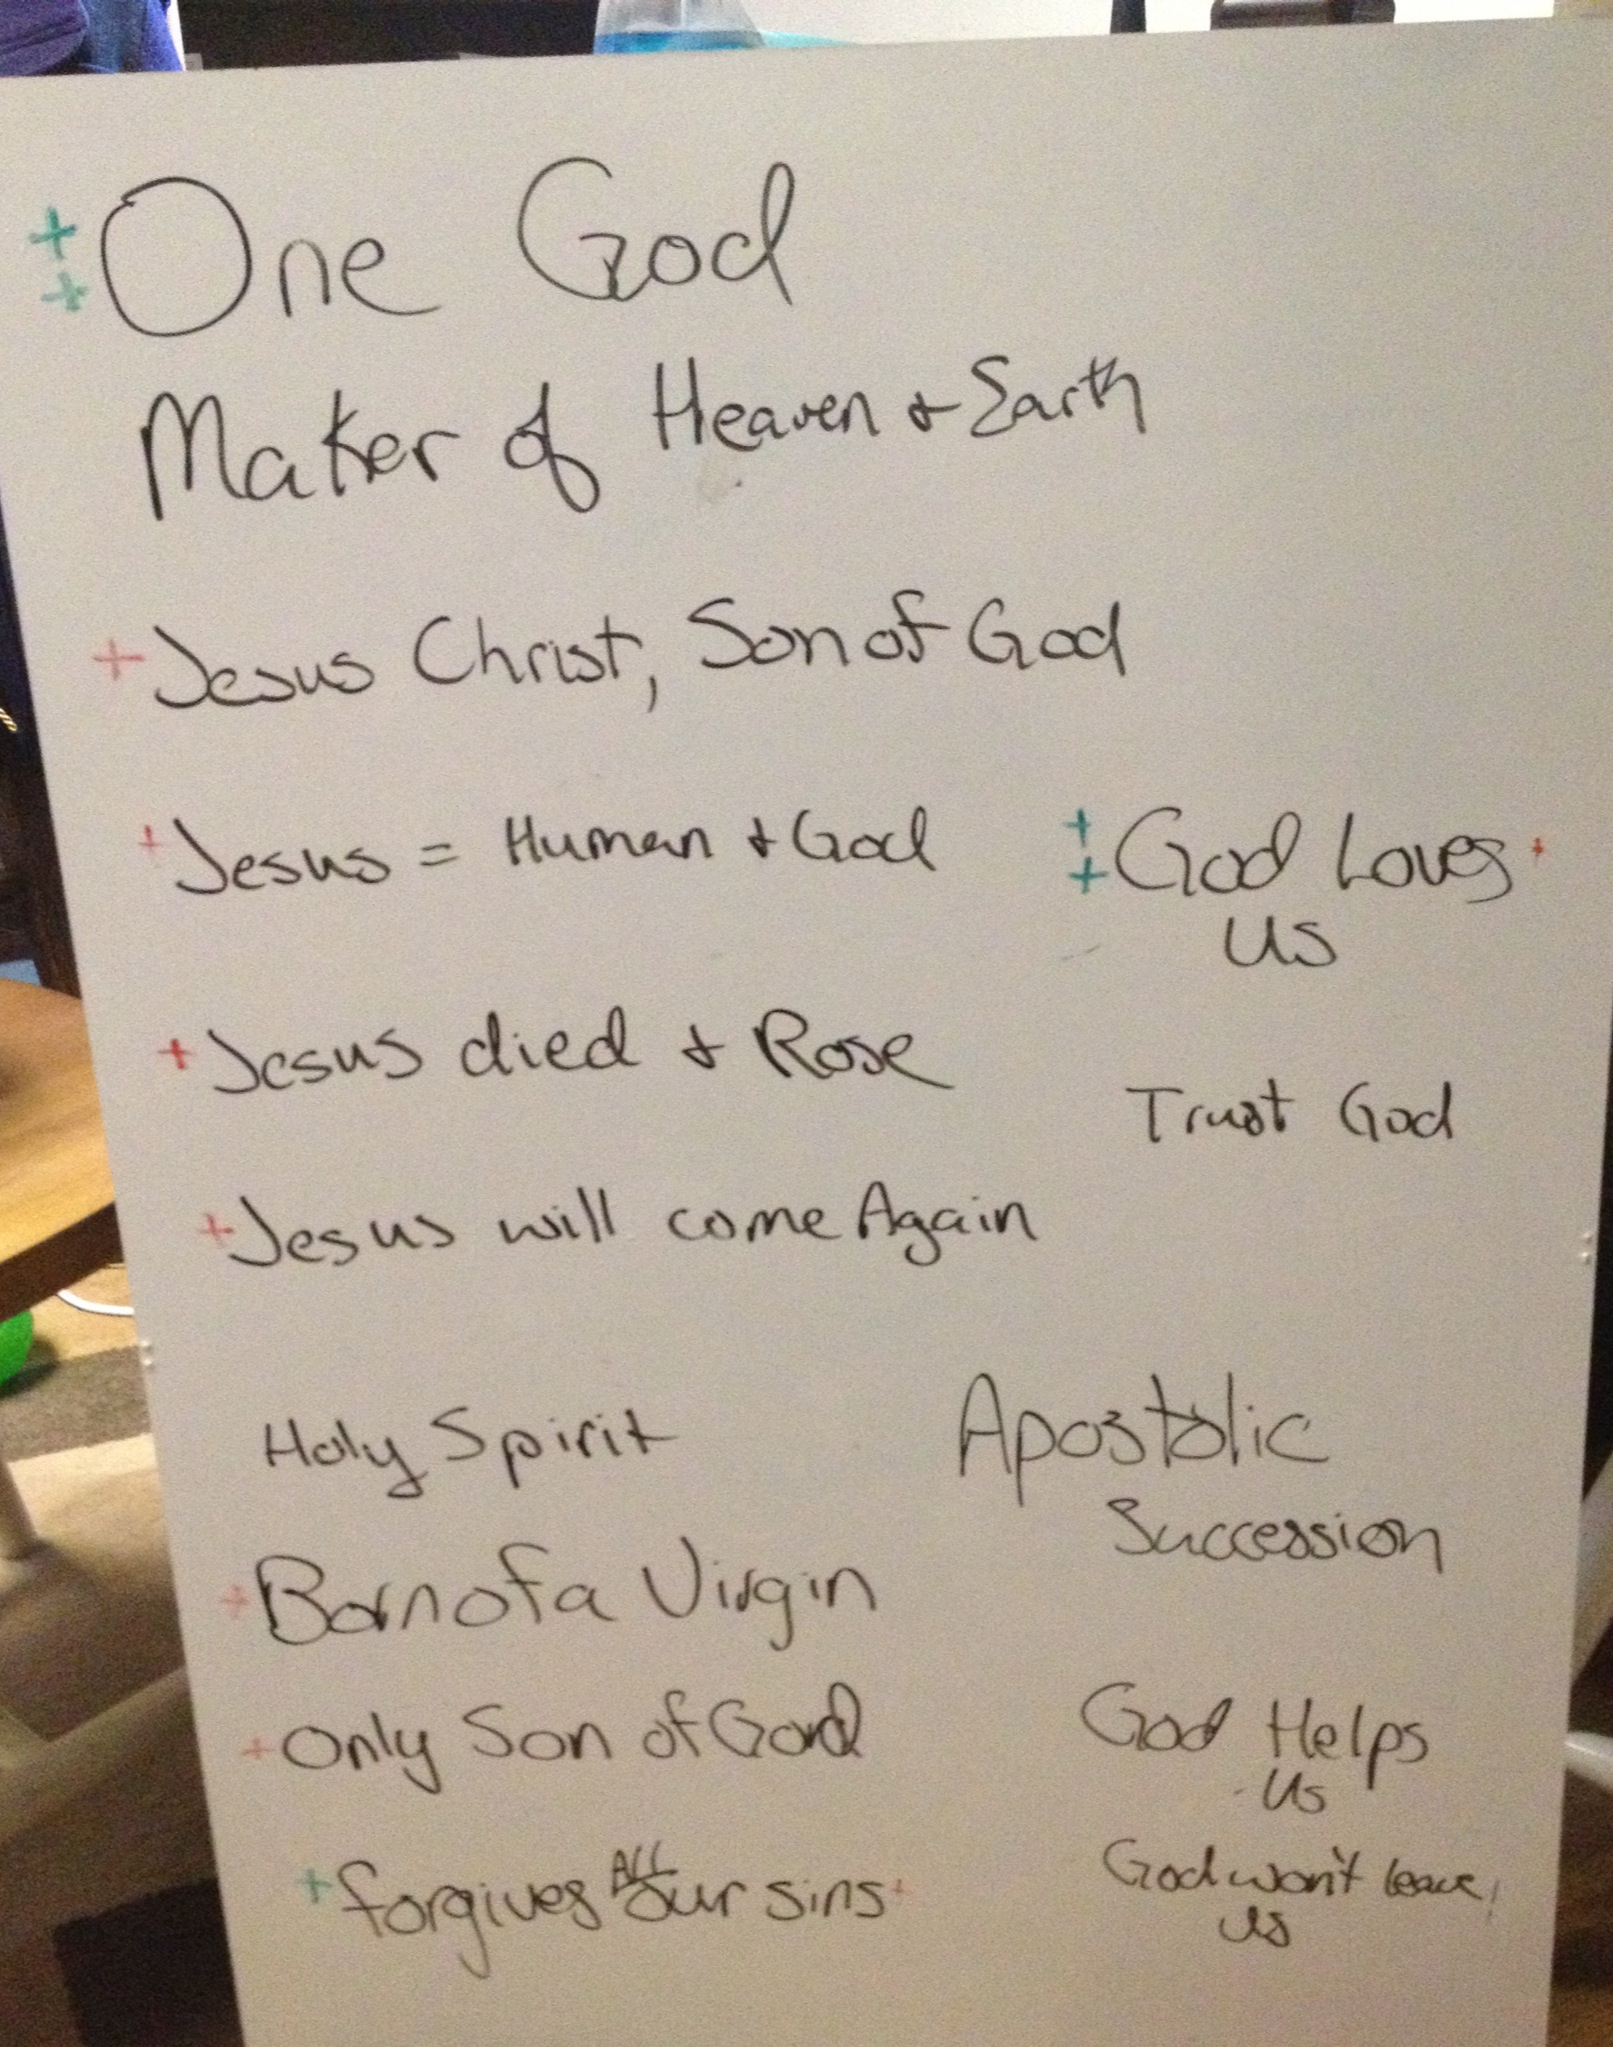 + One God
+
Maker of Heaven & Earth
+ Jesus Christ, Son of God
+ Jesus = Human & God
+ Jesus died & Rose
+ Jesus will come Again
Holy Spirit
+ Born of a Virgin
+ Only Son of God
+ forgives ALL our sins +
+ God Loves +
+ us
Trust God
Apostolic
Succession
God Helps
us
God won't leave
us